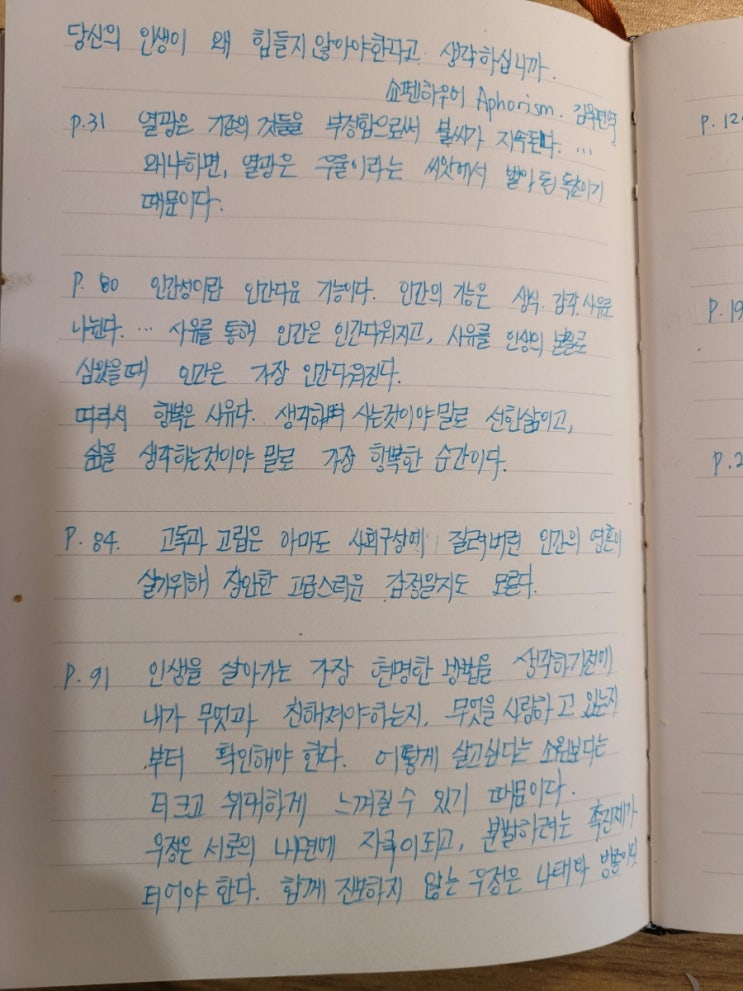 당신의 인생이 왜 힘들지 않아야한다고 생각하십니까.
쇼펜하우어 Aphorism. 김욱편역
p.31 열광은 기존의 것들을 부정함으로써 불씨가 지속된다. ...
왜냐하면, 열광은 우울이라는 씨앗에서 발아된 독초이기
때문이다.
P. 80 인간성이란 인간다운 기능이다. 인간의 기능은 생식. 감각. 사유로
나뉜다. ... 사유를 통해 인간은 인간다워지고, 사유를 인생의 보람으로
삼았을때 인간은 가장 인간다워진다.
따라서 행복은 사유다. 생각하며 사는것이야 말로 선한삶이고,
삶을 생각하는것이야 말로 가장 행복한 순간이다.
P. 84. 고독과 고립은 아마도 사회구성에 질려버린 인간의 영혼이
살기위해 창안한 고급스러운 감정일지도 모른다.
P. 91 인생을 살아가는 가장 현명한 방법을 생각하기전에
내가 무엇과 친해져야하는지, 무엇을 사랑하고 있는지
부터 확인해야 한다. 어떻게 살고싶다는 소원보다는
더크고 위대하게 느껴질 수 있기 때문이다.
우정은 서로의 내면에 자극이되고, 분발하려는 촉진제가
되어야 한다. 함께 진보하지 않는 우정은 나태와
P. 12
P. 19
P. 2